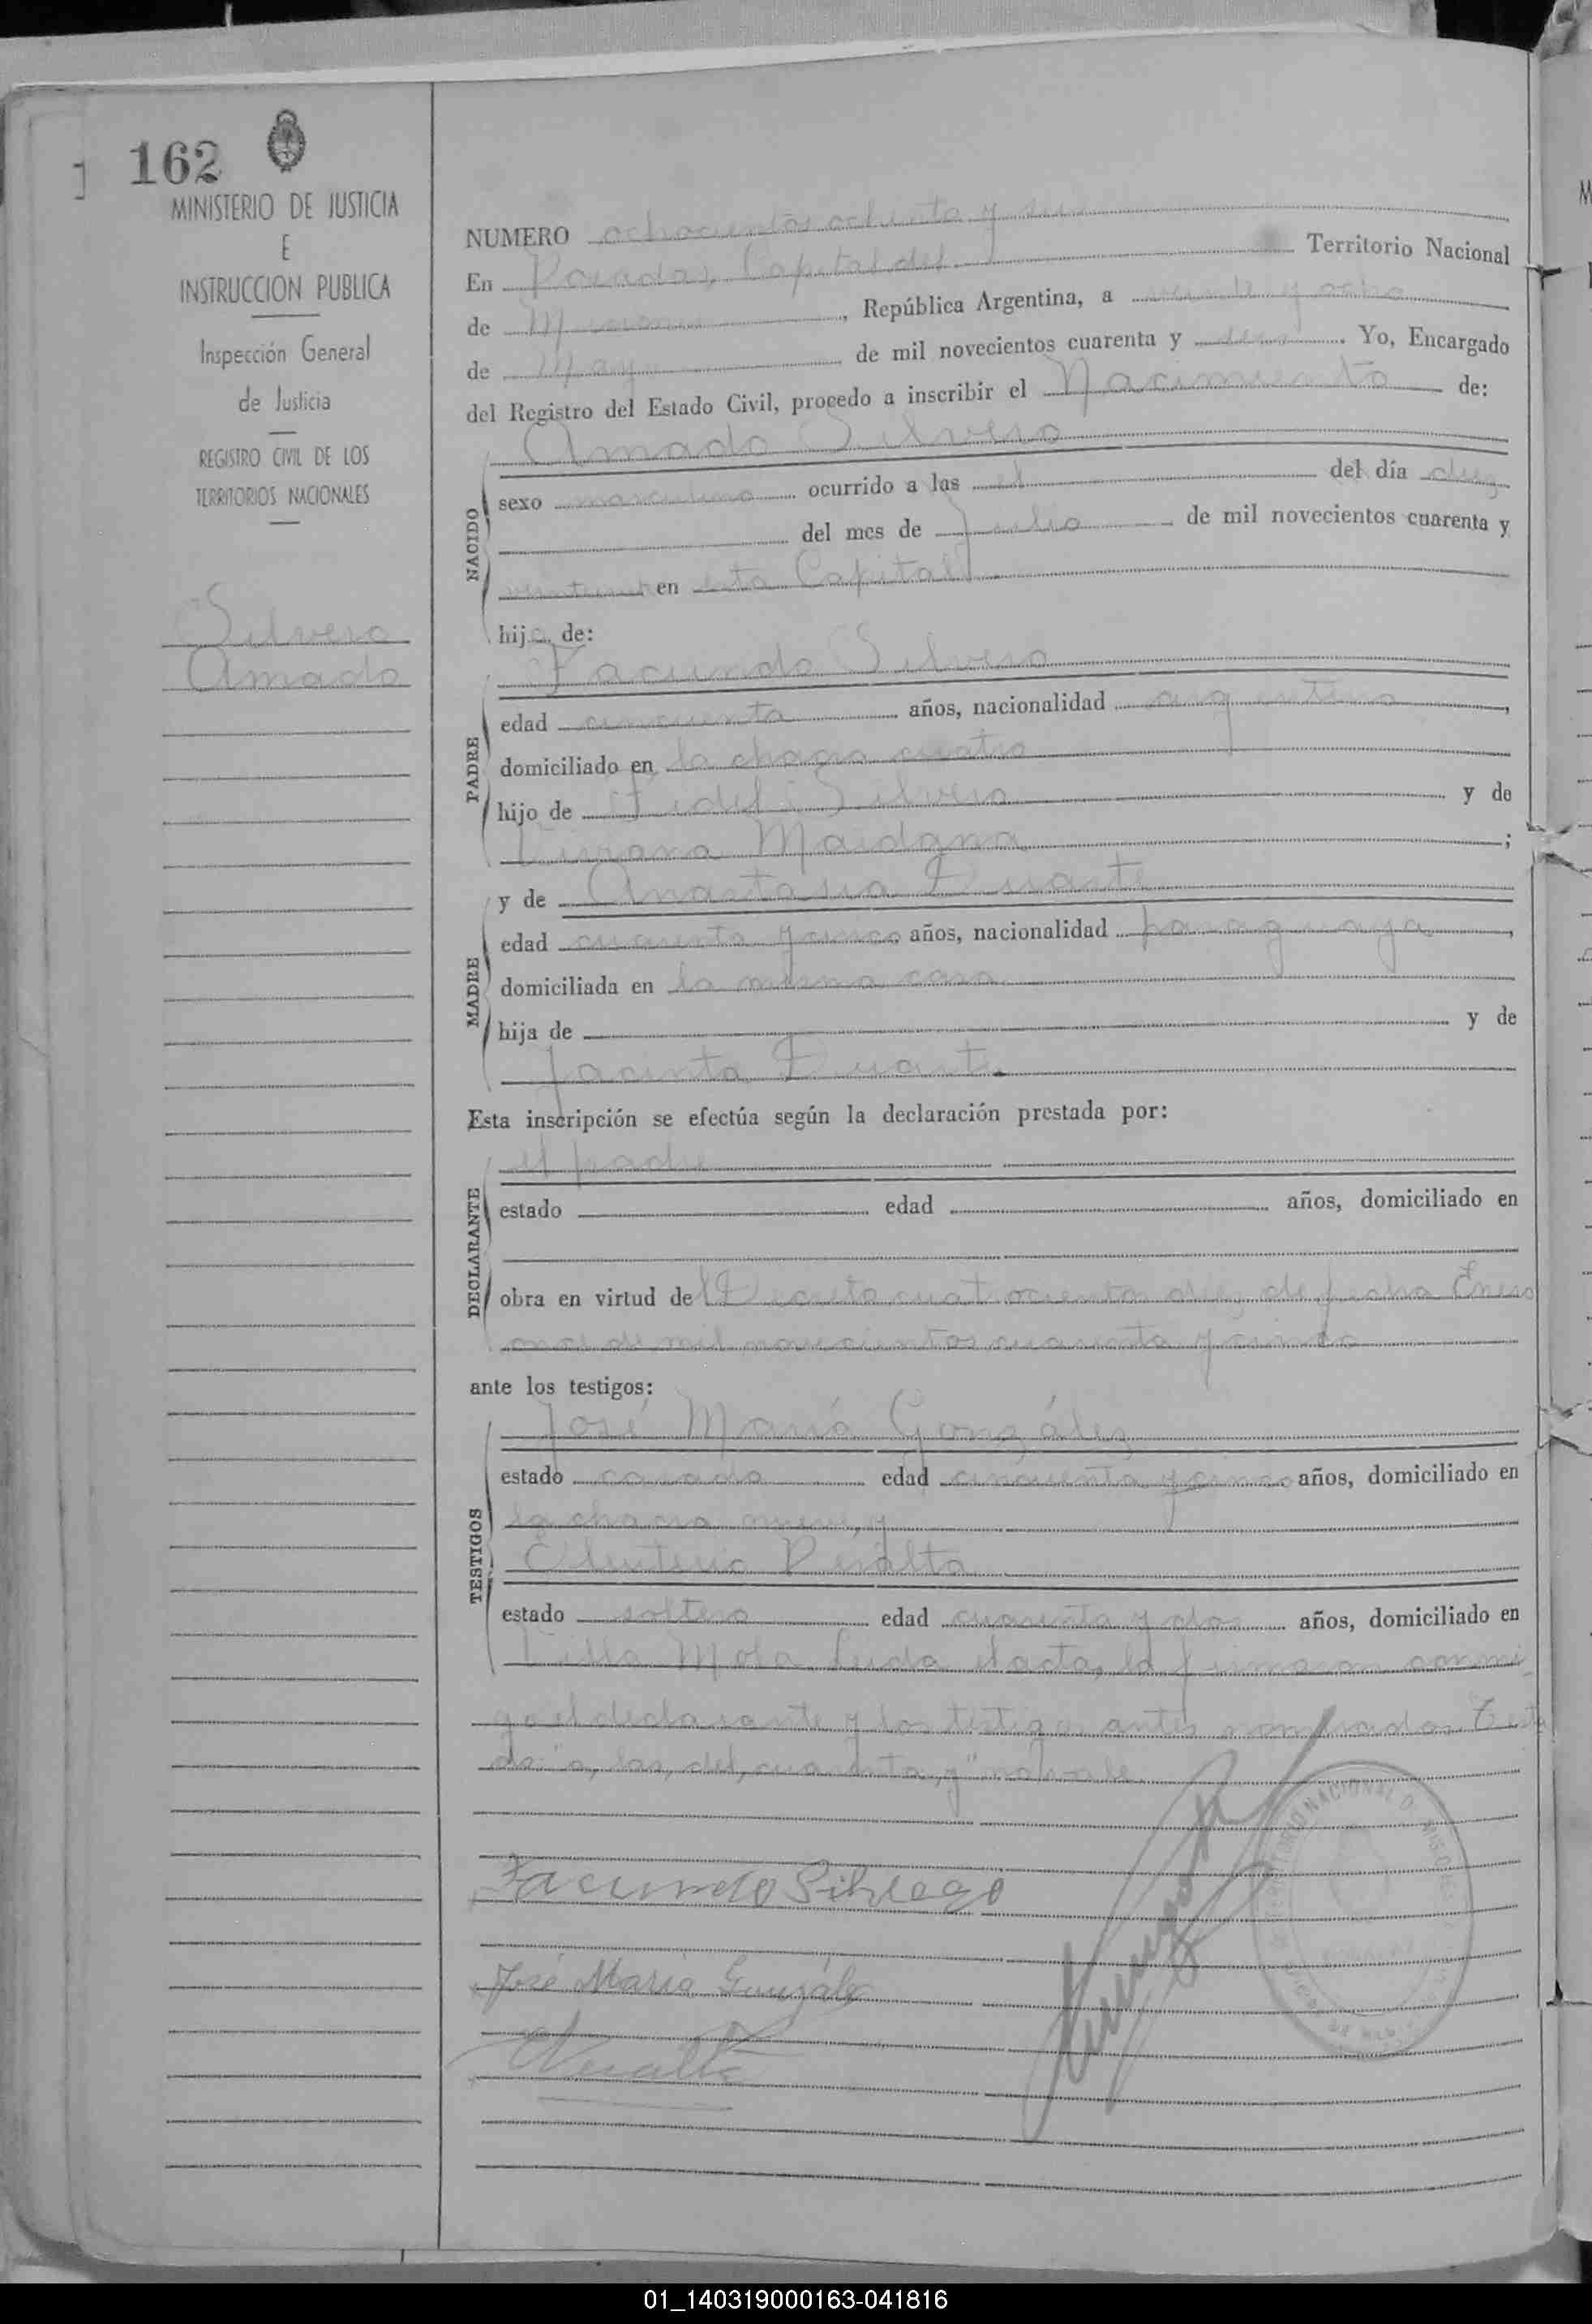 162
MINISTERIO DE JUSTICIA
E
INSTRUCCION PUBLICA
Inspección General
de Justicia
REGISTRO CIVIL DE LOS
TERRITORIOS NACIONALES
Silvero
Amado
NUMERO ochocientos ochenta y seis
En Posadas, Capital del Territorio Nacional
de Misiones, República Argentina, a veinte y ocho
de Mayo de mil novecientos cuarenta y Yo, Encargado
del Registro del Estado Civil, procedo a inscribir el Nacimiento de:
Amado Silvero
NACIDO
sexo masculino ocurrido a las el del día diez
del mes de Julio de mil novecientos cuarenta y
en esta Capital
hijo de:
Facundo Silvero
PADRE
edad cincuenta años, nacionalidad argentino,
domiciliado en la chacra cuatro
hijo de Fidel Silvero y de
Maidana;
y de Anastasia Duarte
MADRE
edad cuarenta y cinco años, nacionalidad paraguaya,
domiciliada en la misma casa
hija de y de
Jacinta Duarte
Esta inscripción se efectúa según la declaración prestada por:
el padre
DECLARANTE
estado edad años, domiciliado en
obra en virtud del Decreto cuatrocientos diez de fecha Enero
once de mil novecientos cuarenta y cinco
ante los testigos:
José María González
TESTIGOS
estado casado edad cincuenta y cinco años, domiciliado en
la chacra nueve, y
Eleuterio Peralta
estado soltero edad cuarenta y dos años, domiciliado en
Villa Mola. Leída el acta, la firmaron conmi
go el declarante y los testigos antes nombrados. Testa
do: "a, las, del, cuarenta, y" no vale.
Facundo Silvero
José María González
Peralta
01_140319000163-041816